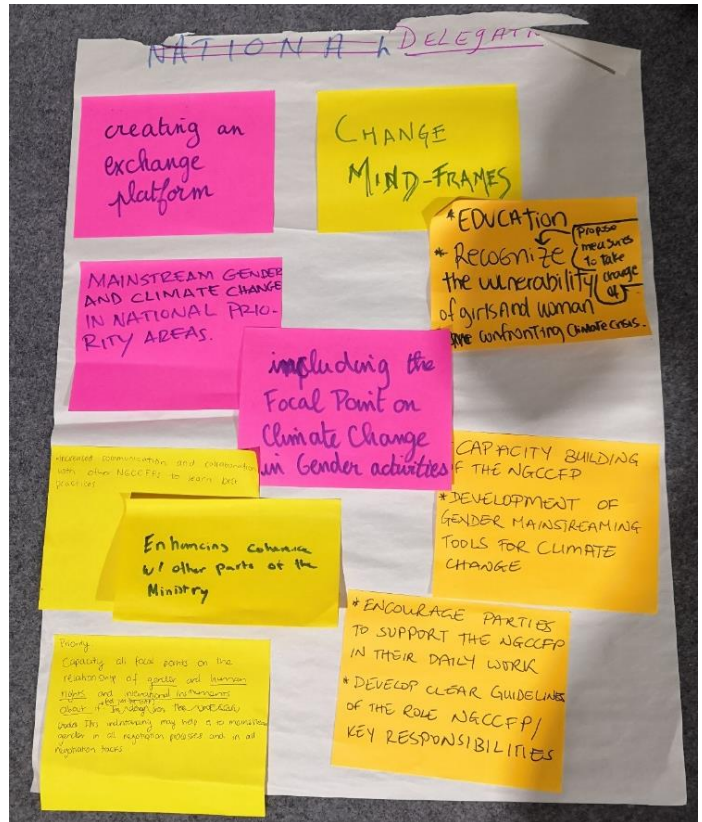 NATIONAL DELEGATE
creating an
exchange
platform
CHANGE
MIND-FRAMES
*EDUCATION
* RECOGNIZE
the vulnerability
of girls And woman
confronting Climate crisis.
Propose
measures
to take
charge
of
MAINSTREAM GENDER
AND CLIMATE CHANGE
IN NATIONAL PRIO-
RITY AREAS.
including the
Focal Point on
Climate Change
in Gender activities
Increased communication and
with other NGCCFPs to learn best
practices
CAPACITY BUILDING
OF THE NGCCFP
*DEVELOPMENT OF
GENDER MAINSTREAMING
TOOLS FOR CLIMATE
CHANGE
Enhancing coherence
w/ other parts of the
Ministry
* ENCOURAGE PARTIES
TO SUPPORT THE NGCCFP
IN THEIR DAILY WORK
* DEVELOP CLEAR GUIDELINES
OF THE ROLE NGCCFP/
KEY RESPONSIBILITIES
Priority
Capacity all focal points on the
relationship of gender and human
rights and international instruments
about it
may help us to mainstream
gender in all negotiation processes and in all
negotiation tracks